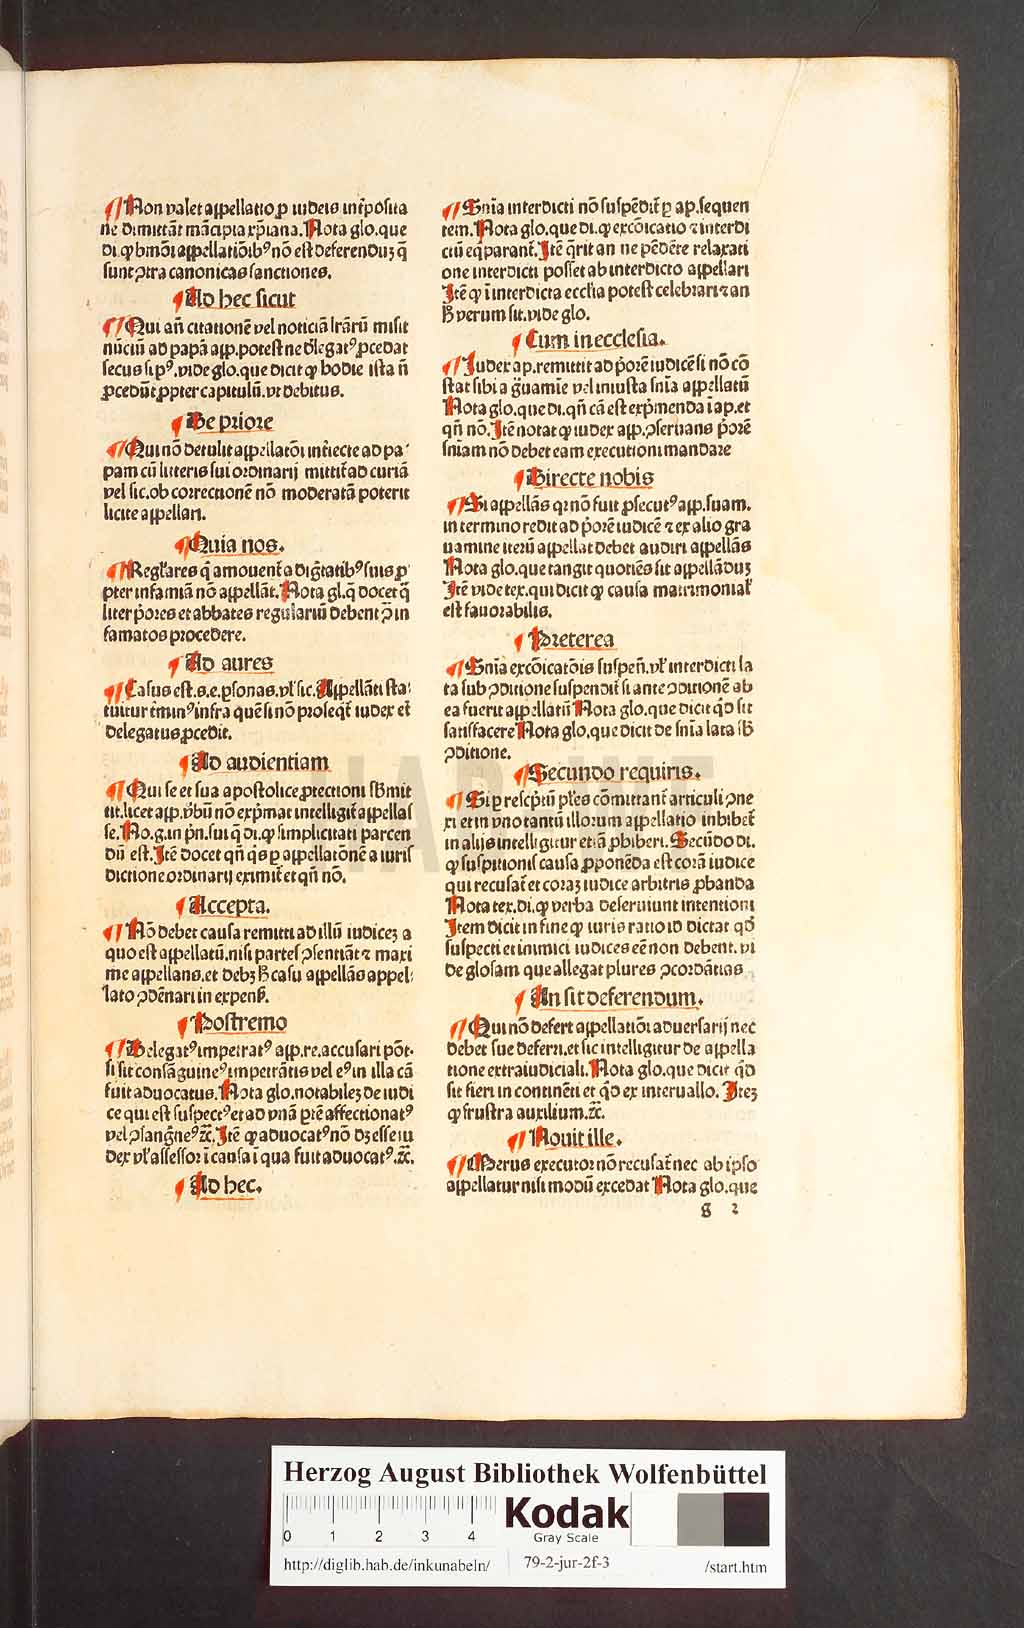 ¶Non valet appellatio ꝑ iudeis int̃posita
ne dimittãt mãcipia xp̃iana. Nota glo. que
di. ꝙ bmõi appellatiõibꝰ nõ est deferenduꝫ q̃
sunt ꝯtra canonicas sanctiones.
¶Ad hec sicut
¶Qui añ citationẽ vel noticiã lr̃arũ misit
nũciũ ad papã app. potest ne dl̃egatꝰ ꝓcedat
secus si pꝰ. vide glo. que dicit ꝙ hodie ista ñ
ꝓcedũt ꝓpter capitulũ. vt debitus.
¶De priore
¶Qui nõ detulit appellatõi int̃iecte ad pa
pam cũ litteris sui ordinarij mittit̃ ad curiã
vel sic. ob correctionẽ nõ moderatã poterit
licite appellari.
¶Quia nos.
¶Regl̃ares q̃ amouent̃ a dig̃tatibꝰ suis ꝓ
pter infamiã nõ appellãt. Nota gl. q̃ docet q̃
liter p̃ores et abbates regulariũ debent ꝯ̃ in
famatos procedere.
¶Ad aures
¶Casus est. s. e. ꝑsonas. vl̃ sic. Appellãti sta
tuitur t̃minꝰ infra quẽ si nõ proseqt̃ iudex et̃
delegatus ꝓcedit.
¶Ad audientiam
¶Qui se et sua apostolice ꝓtectioni sb̃mit
tit. licet app. v̓bũ nõ exp̃mat intelligit̃ appellas
se. No. g. in pñ. sui q̃ di. ꝙ simplicitati parcen
dũ est. Itẽ docet qñ q̃s ꝑ appellatõnẽ a iuris
dictione ordinarij eximit̃ et qñ nõ.
¶Accepta.
¶Nõ debet causa remitti ad illũ iudiceꝫ a
quo est appellatũ. nisi partes ꝯsentiãt ⁊ maxi
me appellans. et debꝫ h̃ casu appellãs appel
lato ꝯdẽnari in expens̃.
¶Postremo
¶Delegatꝰ impetratꝰ app. re. accusari põt.
si sit consãguineꝰ impetrãtis vel eꝰ in illa cã
fuit aduocatus. Nota glo. notabileꝫ de iudi
ce qui est suspectꝰ et ad vnã ꝑtẽ affectionatꝰ
vel ꝯsang̃neꝰ ⁊c̃. Itẽ ꝙ aduocatꝰ nõ dꝫ esse iu
dex vl̃ assessor ĩ causa ĩ qua fuit aduocatꝰ. ⁊c̃.
¶Ad hec.
¶Sñia interdicti nõ suspẽdit̃ ꝑ ap. sequen
tem. Nota glo. que di. ꝙ excõicatio ⁊ interdi
ctũ eq̃parant̃. Itẽ q̃rit an ne pẽdẽte relaxati
one interdicti posset ab interdicto appellari
Itẽ ꝙ ĩ interdicta eccl̃ia potest celebrari ⁊ an
h̃ verum sit. vide glo.
¶Cum in ecclesia.
¶Iudex ap. remittit ad p̃orẽ iudicẽ si nõ cõ
stat sibi a g̃uamie vel iniusta sñia appellatũ
Nota glo. que di. qñ cã est exp̃menda ĩ ap. et
qñ nõ. Itẽ notat ꝙ iudex app. ꝯseruans p̃orẽ
sñiam nõ debet eam executioni mandare
¶Directe nobis
¶Si appellãs qꝛ nõ fuit ꝓsecutꝰ app. suam.
in termino redit ad p̃orẽ iudicẽ ⁊ ex alio gra
uamine iterũ appellat debet audiri appellãs
Nota glo. que tangit quotiẽs sit appellãduꝫ
Itẽ vide tex. qui dicit ꝙ causa matrimonial̃
est fauorabilis.
¶Preterea
¶Sñia excõicatõis suspeñ. vl̃ interdicti la
ta sub ꝯditione suspendit̃ si ante ꝯditionẽ ab
ea fuerit appellatũ Nota glo. que dicit qd̃ sit
satisfacere Nota glo. que dicit de sñia lata sb̃
ꝯditione.
¶Secundo requiris.
¶Si ꝑ rescp̃tũ pl̃es cõmittant̃ articuli ꝯne
xi et in vno tantũ illorum appellatio inhibet̃
in alijs intelligitur etiã ꝓhiberi. Secũdo di.
ꝙ suspitionis causa ꝓponẽda est corã iudice
qui recusat̃ et coraꝫ iudice arbitris ꝓbanda
Nota tex. di. ꝙ verba deseruiunt intentioni
Item dicit in fine ꝙ iuris ratio id dictat qd̃
suspecti et inimici iudices eẽ non debent. vi
de glosam que allegat plures ꝯcordãtias
¶An sit deferendum.
¶Qui nõ defert appellatiõi aduersarij nec
debet sue deferri. et sic intelligitur de appella
tione extraiudiciali. Nota glo. que dicit qd̃
sit fieri in continẽti et qd̃ ex interuallo. Iteꝫ
ꝙ frustra auxilium. ⁊c̃.
¶Nouit ille.
¶Merus executor nõ recusat̃ nec ab ipso
appellatur nisi modũ excedat Nota glo. que
g 2
HAB-WF
Herzog August Bibliothek Wolfenbüttel
0 1 2 3 4
Kodak
Gray Scale
http://diglib.hab.de/inkunabeln/ 79-2-jur-2f-3 /start.htm